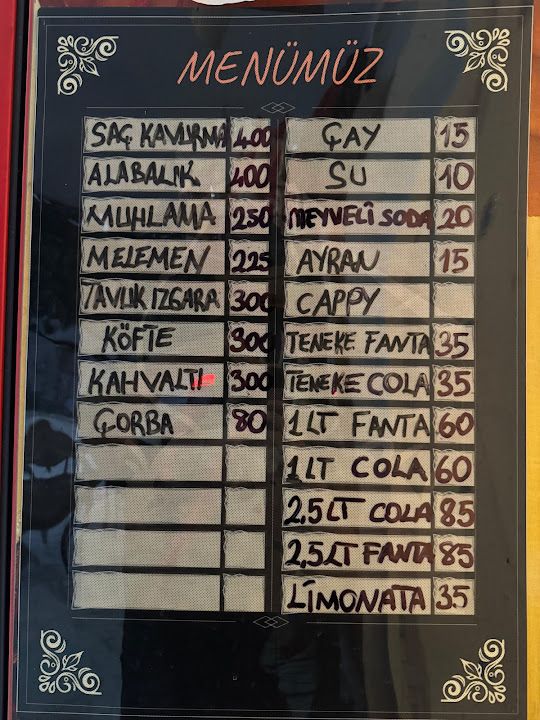 MENÜMÜZ
SAÇ KAVURMA 400
ALABALIK 400
MUHLAMA 250
MELEMEN 225
TAVLIK IZGARA 300
KÖFTE 300
KAHVALTI 300
ÇORBA 80
ÇAY 15
SU 10
MEYVELİ SODA 20
AYRAN 15
CAPPY
TENEKE FANTA 35
TENEKE COLA 35
1LT FANTA 60
1LT COLA 60
2,5LT COLA 85
2,5LT FANTA 85
LİMONATA 35